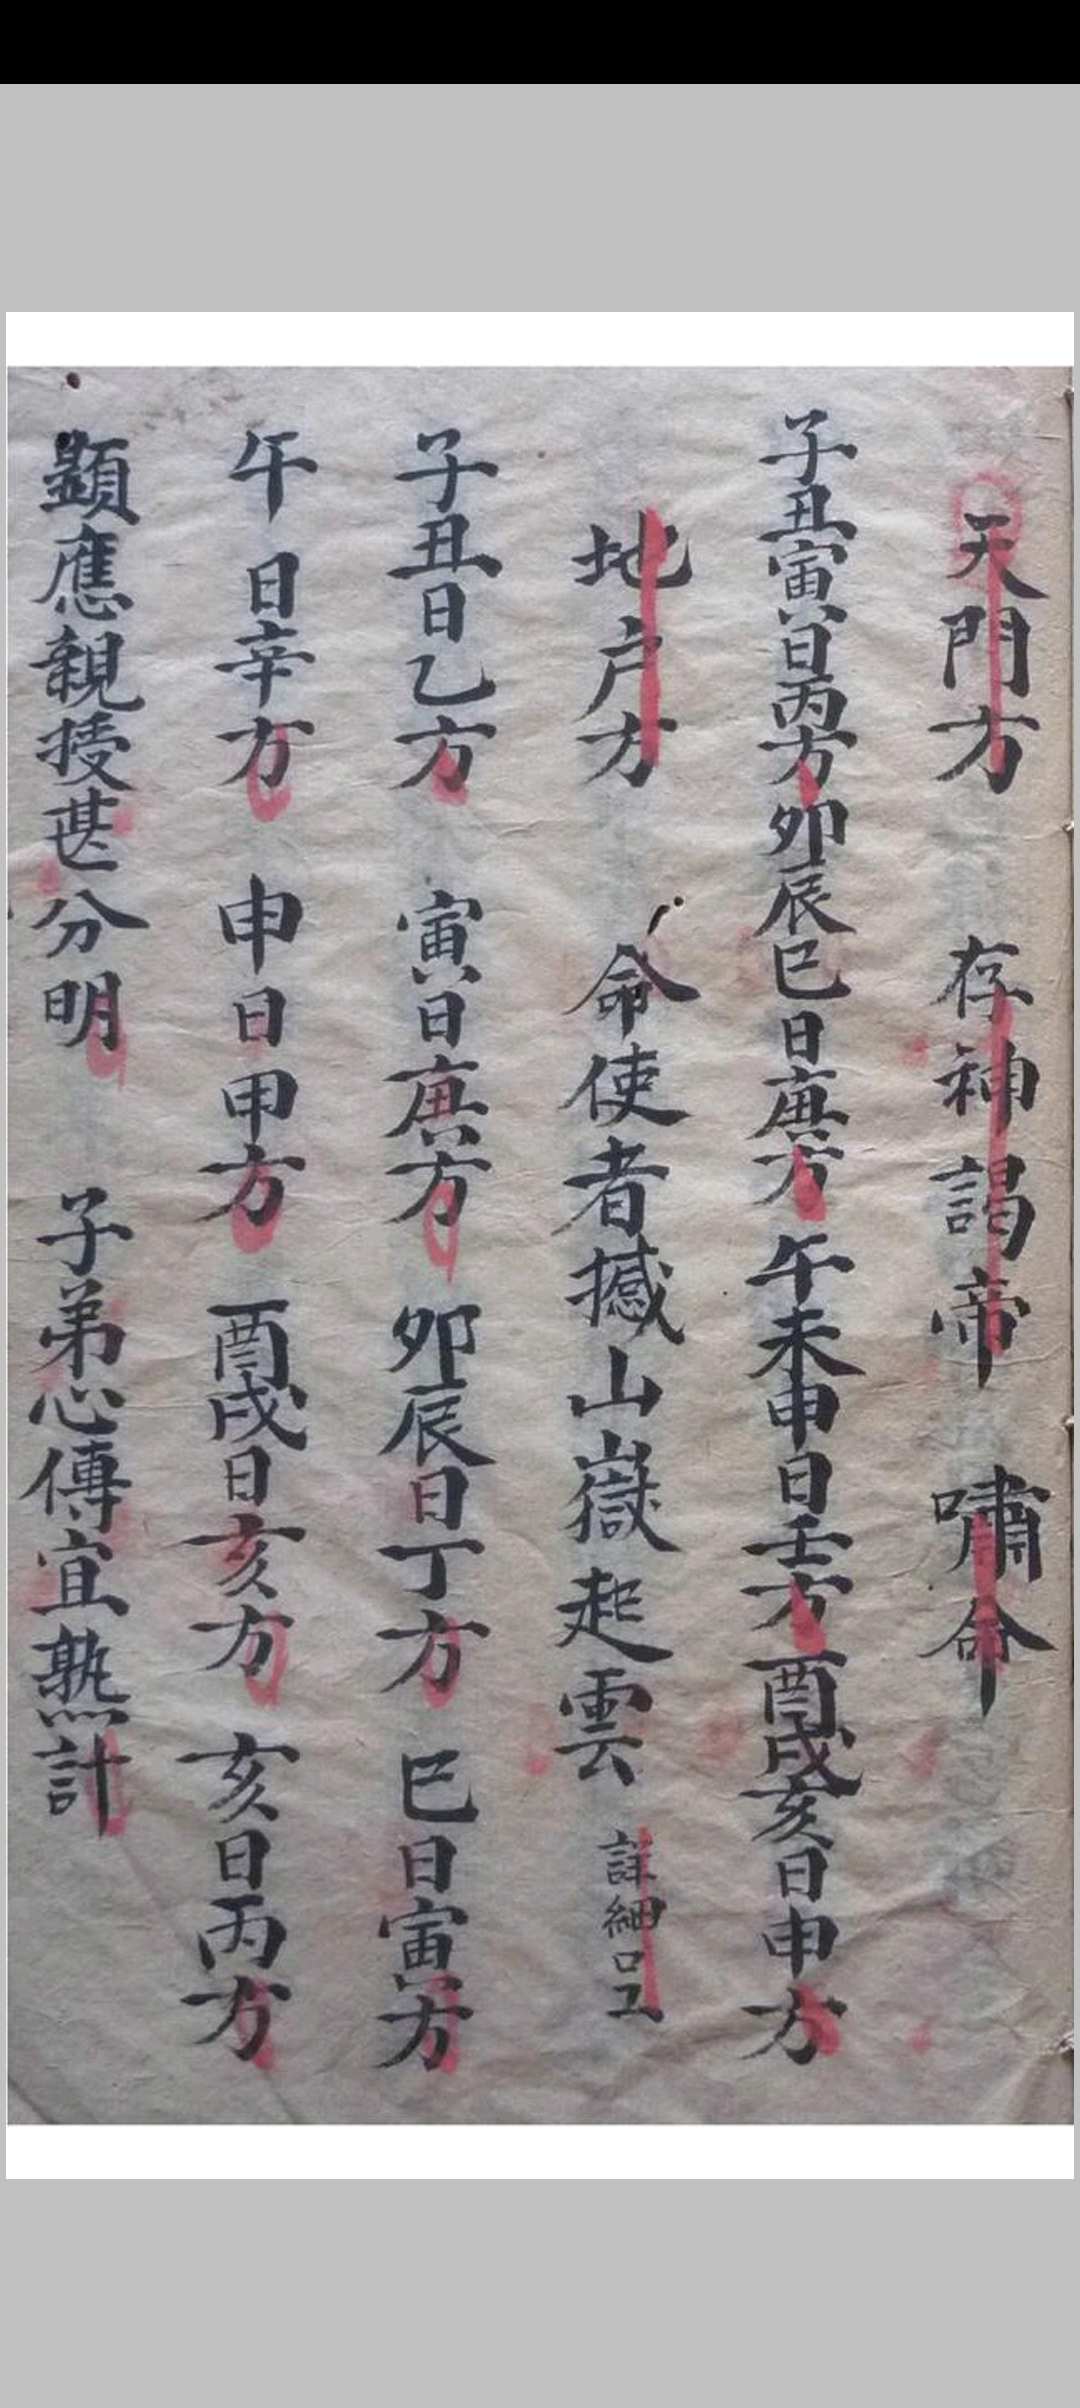 天門方 存神謁帝 嘯命
子丑寅日丙方卯辰巳日庚方午未申日壬方酉戌亥日申方
地户方 命使者撼山嶽起雲 詳細口工
子丑日乙方 寅日庚方 卯辰日丁方 巳日寅方
午日辛方 申日甲方 酉戌日亥方 亥日丙方
顕應親授甚分明 子弟心傳宜熟計